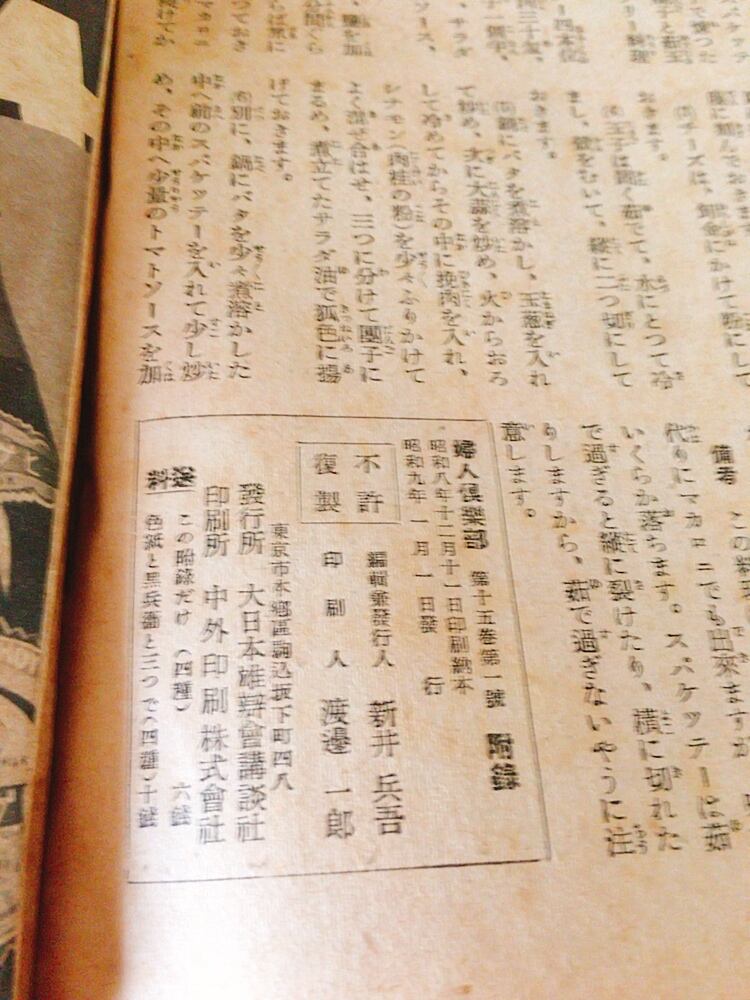 (3)チーズは、卸金にかけて粉にして
おきます。
(4)玉子は固く茹でて、水にとつて冷
まし、殻をむいて、縦に二つ切にして
おきます。
(5)鍋にバタを煮溶かし、玉葱を入れ
て炒め、次に大蒜を炒め、火からおろ
して冷めてからその中に挽肉を入れ、
シナモン(肉桂の粉)を少々ふりかけて
よく混ぜ合はせ、三つに分けて團子に
まるめ、煮立てたサラダ油で狐色に揚
げておきます。
(6)別に、鍋にバタを少々煮溶かした
中へ前のスパケッテーを入れて少し炒
め、その中へ少量のトマトソースを加
備考
代りにマカロニでも出來ますが
いくらか落ちます。スパケッテーは茹
で過ぎると縦に裂けたり、横に切れた
りしますから、茹で過ぎないやうに注
意します。
婦人倶樂部 第十五卷第一號 附錄
昭和八年十二月十一日印刷納本
昭和九年 一月 一日發 行
不許
復製
編輯兼發行人 新井兵吾
印刷人 渡邊一郎
東京市本鄕區駒込坂下町四八
發行所 大日本雄辯會講談社
印刷所 中外印刷株式會社
送料
この附錄だけ(四種) 六錢
色紙と黑兵衞と三つで(四種)十錢